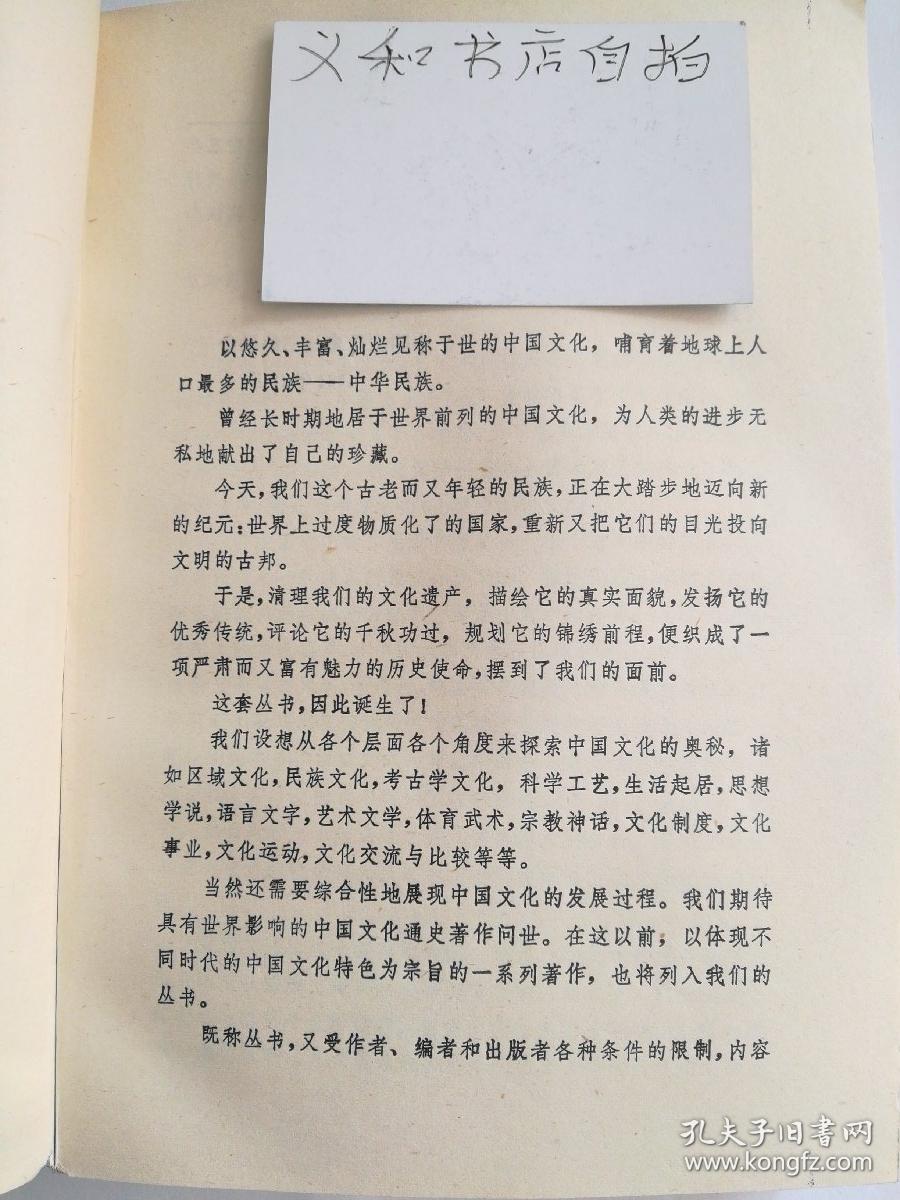 义和书店自拍
以悠久、丰富、灿烂见称于世的中国文化，哺育着地球上人
口最多的民族——中华民族。
曾经长时期地居于世界前列的中国文化，为人类的进步无
私地献出了自己的珍藏。
今天，我们这个古老而又年轻的民族，正在大踏步地迈向新
的纪元；世界上过度物质化了的国家，重新又把它们的目光投向
文明的古邦。
于是，清理我们的文化遗产，描绘它的真实面貌，发扬它的
优秀传统，评论它的千秋功过，规划它的锦绣前程，便织成了一
项严肃而又富有魅力的历史使命，摆到了我们的面前。
这套丛书，因此诞生了！
我们设想从各个层面各个角度来探索中国文化的奥秘，诸
如区域文化，民族文化，考古学文化，科学工艺，生活起居，思想
学说，语言文字，艺术文学，体育武术，宗教神话，文化制度，文化
事业，文化运动，文化交流与比较等等。
当然还需要综合性地展现中国文化的发展过程。我们期待
具有世界影响的中国文化通史著作问世。在这以前，以体现不
同时代的中国文化特色为宗旨的一系列著作，也将列入我们的
丛书。
既称丛书，又受作者、编者和出版者各种条件的限制，内容
孔夫子旧書网
www.kongfz.com